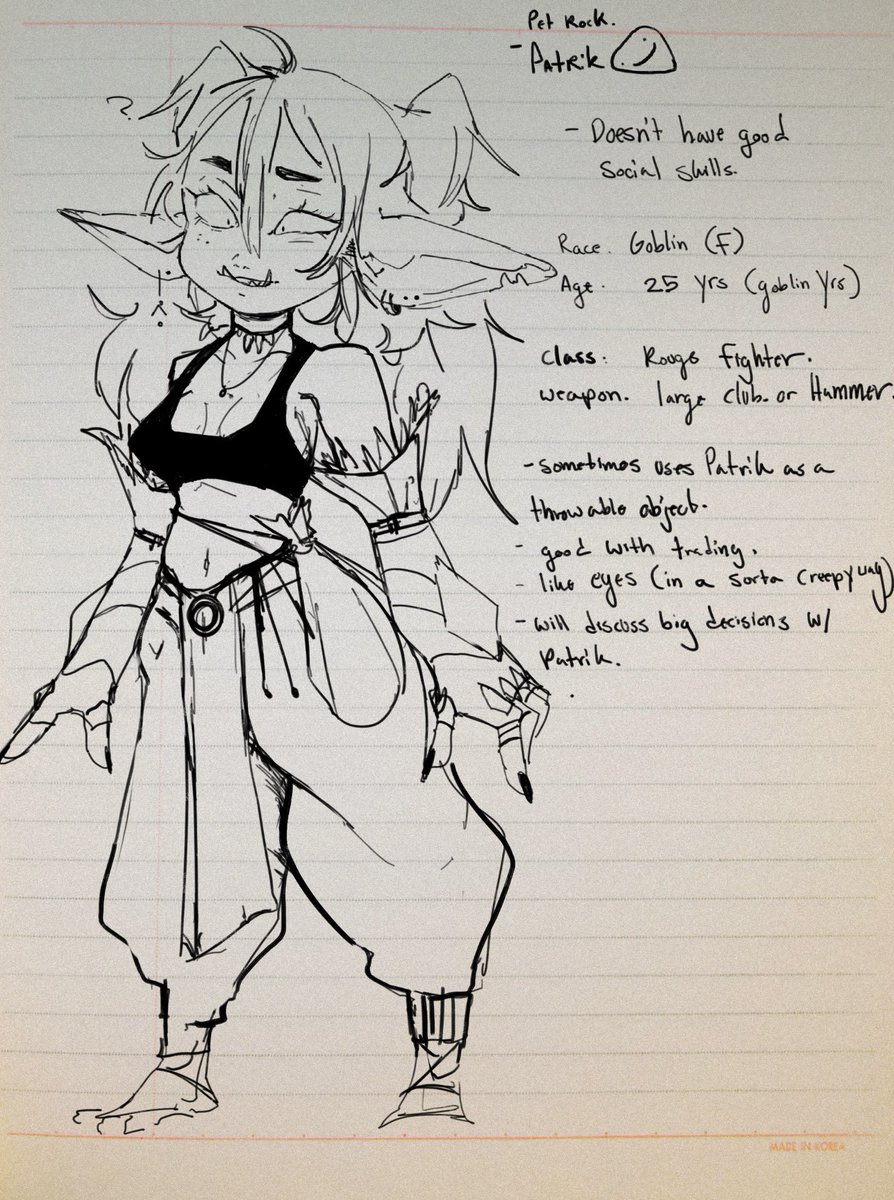 Pet Rock.
- Patrik
- Doesn't have good
social skills.
Race. Goblin (F)
Age. 25 yrs (goblin yrs)
class: Rouge fighter.
weapon. large club. or Hammer.
- sometimes uses Patrik as a
throwable object.
- good with trading.
- like eyes (in a sorta creepy way)
- will discuss big decisions w/
Patrik.
?
MADE IN KOREA